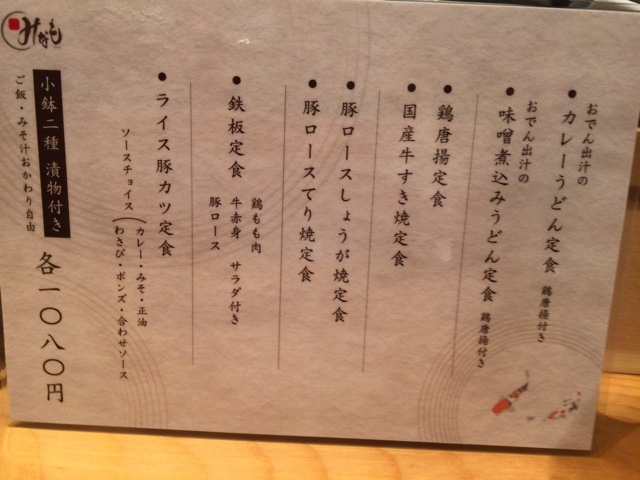 おでん出汁の
●カレーうどん定食 鶏唐揚付き
おでん出汁の
●味噌煮込みうどん定食 鶏唐揚付き
●鶏唐揚定食
●国産牛すき焼定食
●豚ロースしょうが焼定食
●豚ロースてり焼定食
●鉄板定食
鶏もも肉
牛赤身 サラダ付き
豚ロース
●ライス豚カツ定食
ソースチョイス(カレー・みそ・正油
わさび・ポンズ・合わせソース
小鉢二種 漬物付き 各一〇八〇円
ご飯・みそ汁おかわり自由
みなも